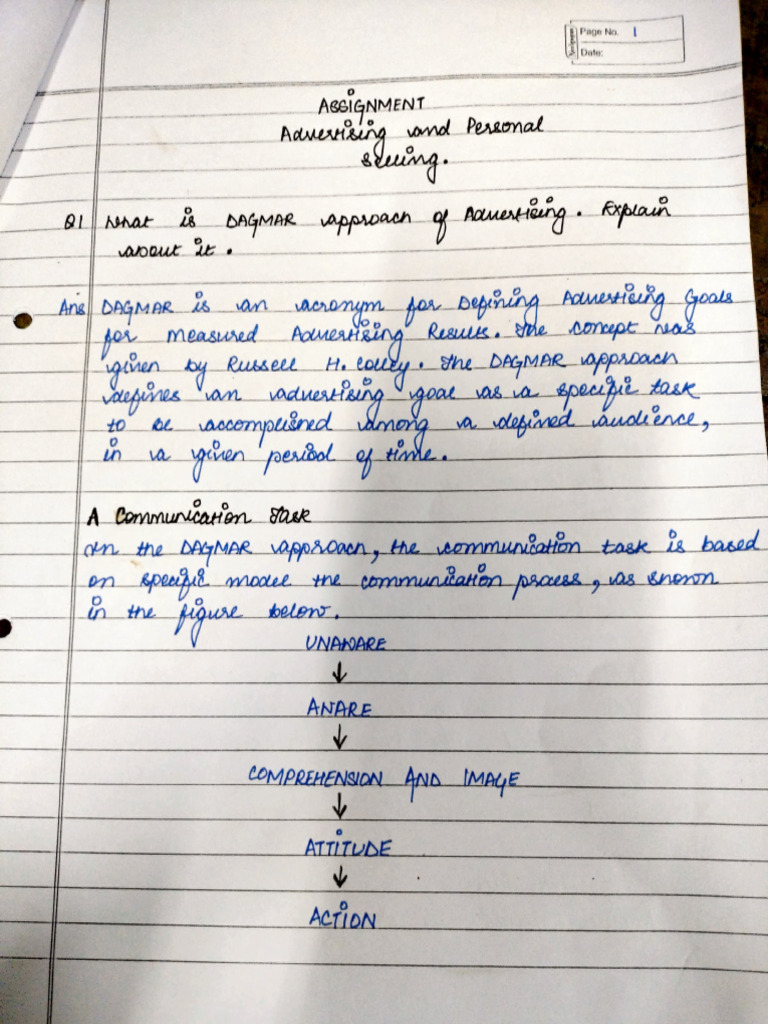 Page No. 1
Date:
ASSIGNMENT
Advertising and Personal
Selling.
Q1 What is DAGMAR approach of Advertising. Explain
about it.
Ans DAGMAR is an acronym for Defining Advertising Goals
for Measured Advertising Results. The concept was
given by Russell H. Colley. The DAGMAR approach
defines an advertising goal as a specific task
to be accomplished among a defined audience,
in a given period of time.
A Communication Task
In the DAGMAR approach, the communication task is based
on specific model the communication process, as shown
in the figure below.
UNAWARE
↓
AWARE
↓
COMPREHENSION AND IMAGE
↓
ATTITUDE
↓
ACTION